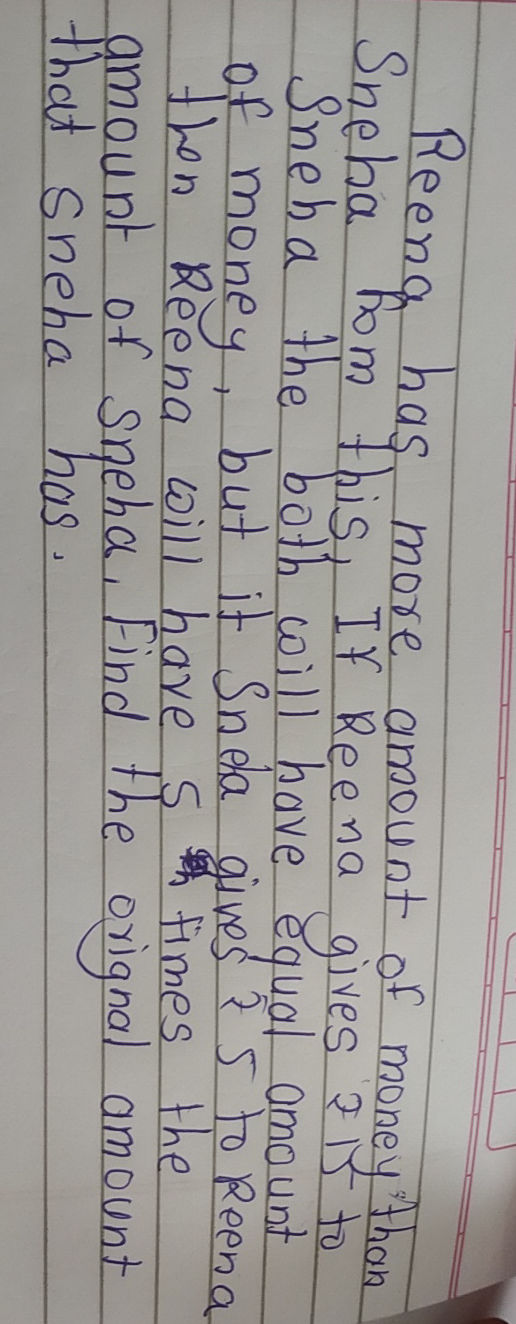 Reena has more amount of money than
Sneha from this, If Reena gives ₹ 15 to
Sneha the both will have equal amount
of money, but if Sneha gives ₹ 5 to Reena
then Reena will have 5 times the
amount of Sneha, Find the orignal amount
that Sneha has.